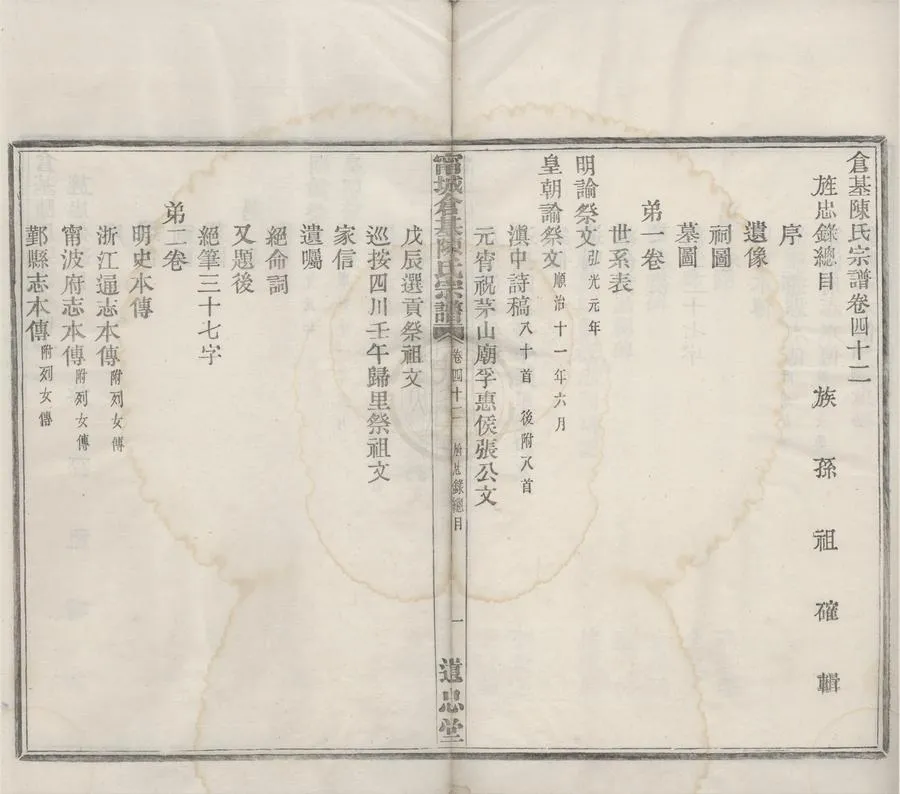 倉基陳氏宗譜卷四十二
旌忠錄總目　族孫祖確輯
序
遺像
祠圖
墓圖
弟一卷
世系表
明諭祭文弘光元年
皇朝諭祭文順治十一年六月
滇中詩稿八十首　後附八首
元宵祝茅山廟孚惠侯張公文
甯城倉基陳氏宗譜　卷四十二　旌忠錄總目　一　遺忠堂
戊辰選貢祭祖文
巡按四川壬午歸里祭祖文
家信
遺囑
絕命詞
又題後
絕筆三十七字
弟二卷
明史本傳
浙江通志本傳附列女傳
甯波府志本傳附列女傳
鄞縣志本傳附列女傳